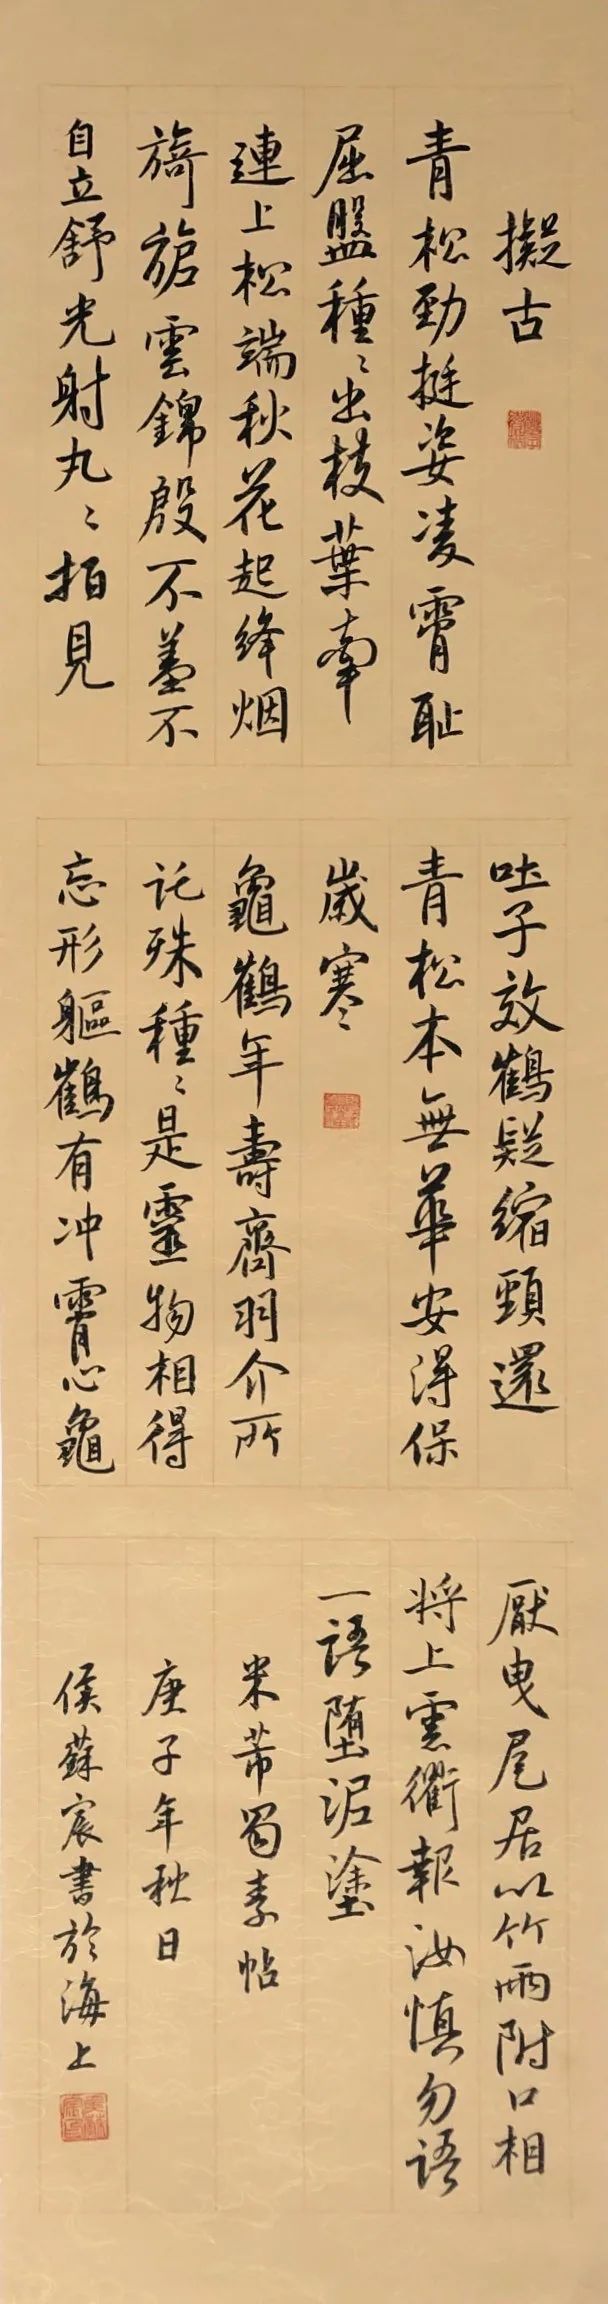 擬古
青松勁挺姿凌霄恥
屈盤種〻出枝葉牽
連上松端秋花起絳烟
旖旎雲錦殷不羞不
自立舒光射丸〻拍見
吐子效鶴疑縮頸還
青松本無華安得保
歲寒
龜鶴年壽齊羽介所
託殊種〻是靈物相得
忘形軀鶴有冲霄心龜
厭曳尾居以竹兩附口相
將上雲衢報汝慎勿語
一語墮泥塗
米芾蜀素帖
庚子年秋日
侯蘇宸書於海上